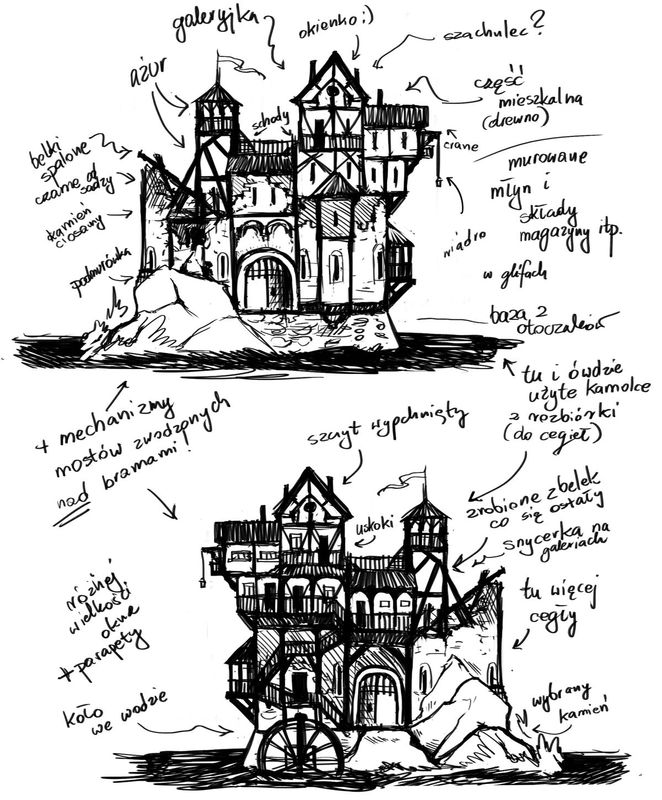 galeryjka
okienko :)
szachulec?
ażur
część
mieszkalna
(drewno)
schody
crane
belki
spalone
czarne od
sadzy
murowane
młyn i
składy
magazyny itp.
kamień
ciosany
wiadro
podmurówka
w glifach
baza z
otoczaków
tu i ówdzie
użyte kamolce
z rozbiórki
(do cegieł)
+ mechanizmy
mostów zwodzonych
nad bramami!
szczyt wypchnięty
uskoki
zrobione z belek
co się ostały
snycerka na
galeriach
różnej
wielkości
okna
+ parapety
tu więcej
cegły
koło
we wodzie
wybrany
kamień